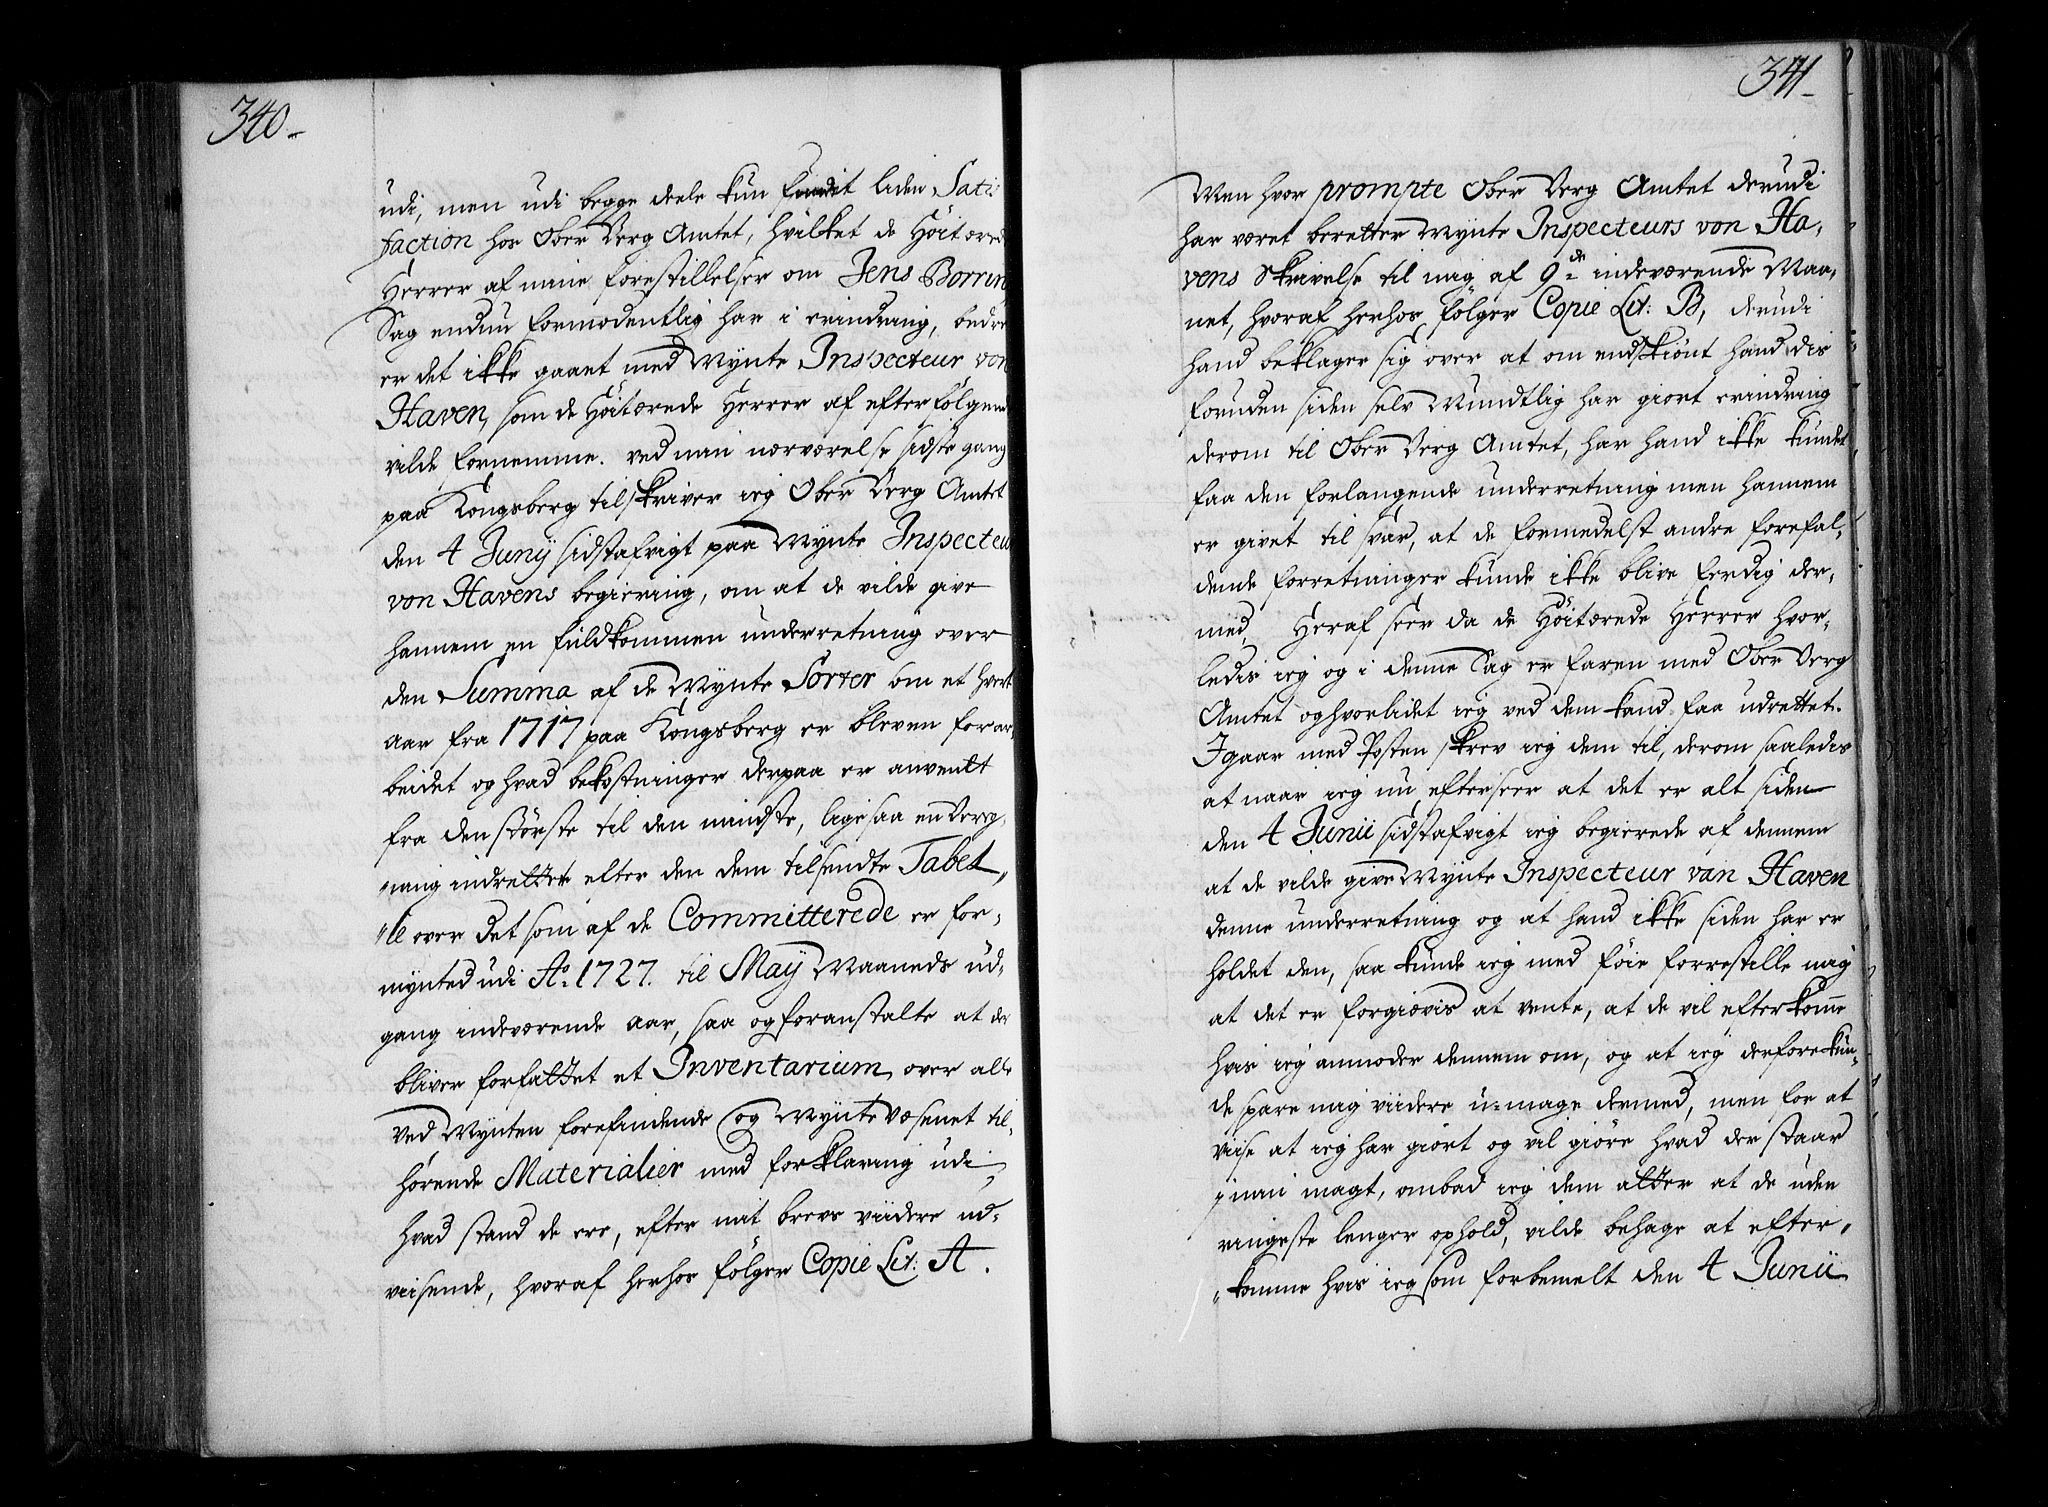 340-
udi, men udi begge deele kun fundet liden Satis
faction hos Ober Berg Amtet, hvilket de Höitærede
Herrer af mine forestillelser om Jens Borring
Sag endnu formodentlig har i erindring, bedre
er det ikke gaaet med Mynte Inspecteur von
Haven, som de Höitærede Herrer af efterfölgend
vilde fornemme. ved min nærværelse sidste gang
paa Kongsberg tilskriver ieg Ober Berg Amtet
den 4 Junij sidstafvigt paa Mynte Inspecteur
von Havens begiering, om at de vilde give
hannem en fuldkommen underretning over
den Summa af de Mynte Sorter som et hvert
aar fra 1717 paa Kongsberg er bleven forar,
beidet og hvad bekostninger derpaa er anvendt
fra den störste til den mindste, ligesaa en Bereg,
"ning indrettet efter den dem tilsendte Tabel,,
"le over det som af de Committerede er for,
myntet udi Ao. 1727. til Maij Maaneds ud,
gang indeværende aar, saa og foranstalte at der
bliver forfattet et Inventarium over alle
ved Mynten forefindende og Myntevæsenet til,
hörende Materialier med forklaring udi
hvad stand de ere, efter mit brevs viidere ud,
viisende, hvoraf herhos fölger Copie Lit: A.
341-
Men hvor prompte Ober Berg Amtet derudi
har været beretter Mynte Inspecteurs von Ha,
vens Skrivelse til mig af 9de indeværende Maa,
net, hvoraf herhos fölger Copie Lit: B, derudi
hand beklager sig over at om endskiönt hand dis
foruden siden selv Mundtlig har giort erindring
derom til Ober Berg Amtet, har hand ikke kundet
faa den forlangende underretning men hannem
er givet til svar, at de formedelst andre forefal,
dende forretninger kunde ikke blive ferdig der,
med, Heraf seer da de Höitærede Herrer hvor,
ledis ieg og i denne Sag er faren med Ober Berg
Amtet og hvorlidet ieg ved dem kand faa udrettet.
Igaar med Posten skrev ieg dem til, derom saaledis
at naar ieg nu efterseer at det er alt siden
den 4 Junii sidstafvigt ieg begierede af dennem
at de vilde give Mynte Inspecteur van Haven
denne underretning og at hand ikke siden har er
holdet den, saa kunde ieg med föie forrestille mig
at det er forgiævis at vente, at de vil efterkom̅e
hvis ieg anmoder dennem om, og at ieg derfore kun,
de spare mig viidere u-mage dermed, men for at
viise at ieg har giort og vil giöre hvad der staar
i min magt, ombad ieg dem atter at de uden
ringeste lenger ophold, vilde behage at efter,,
"komme hvis ieg som forbemelt den 4 Junii